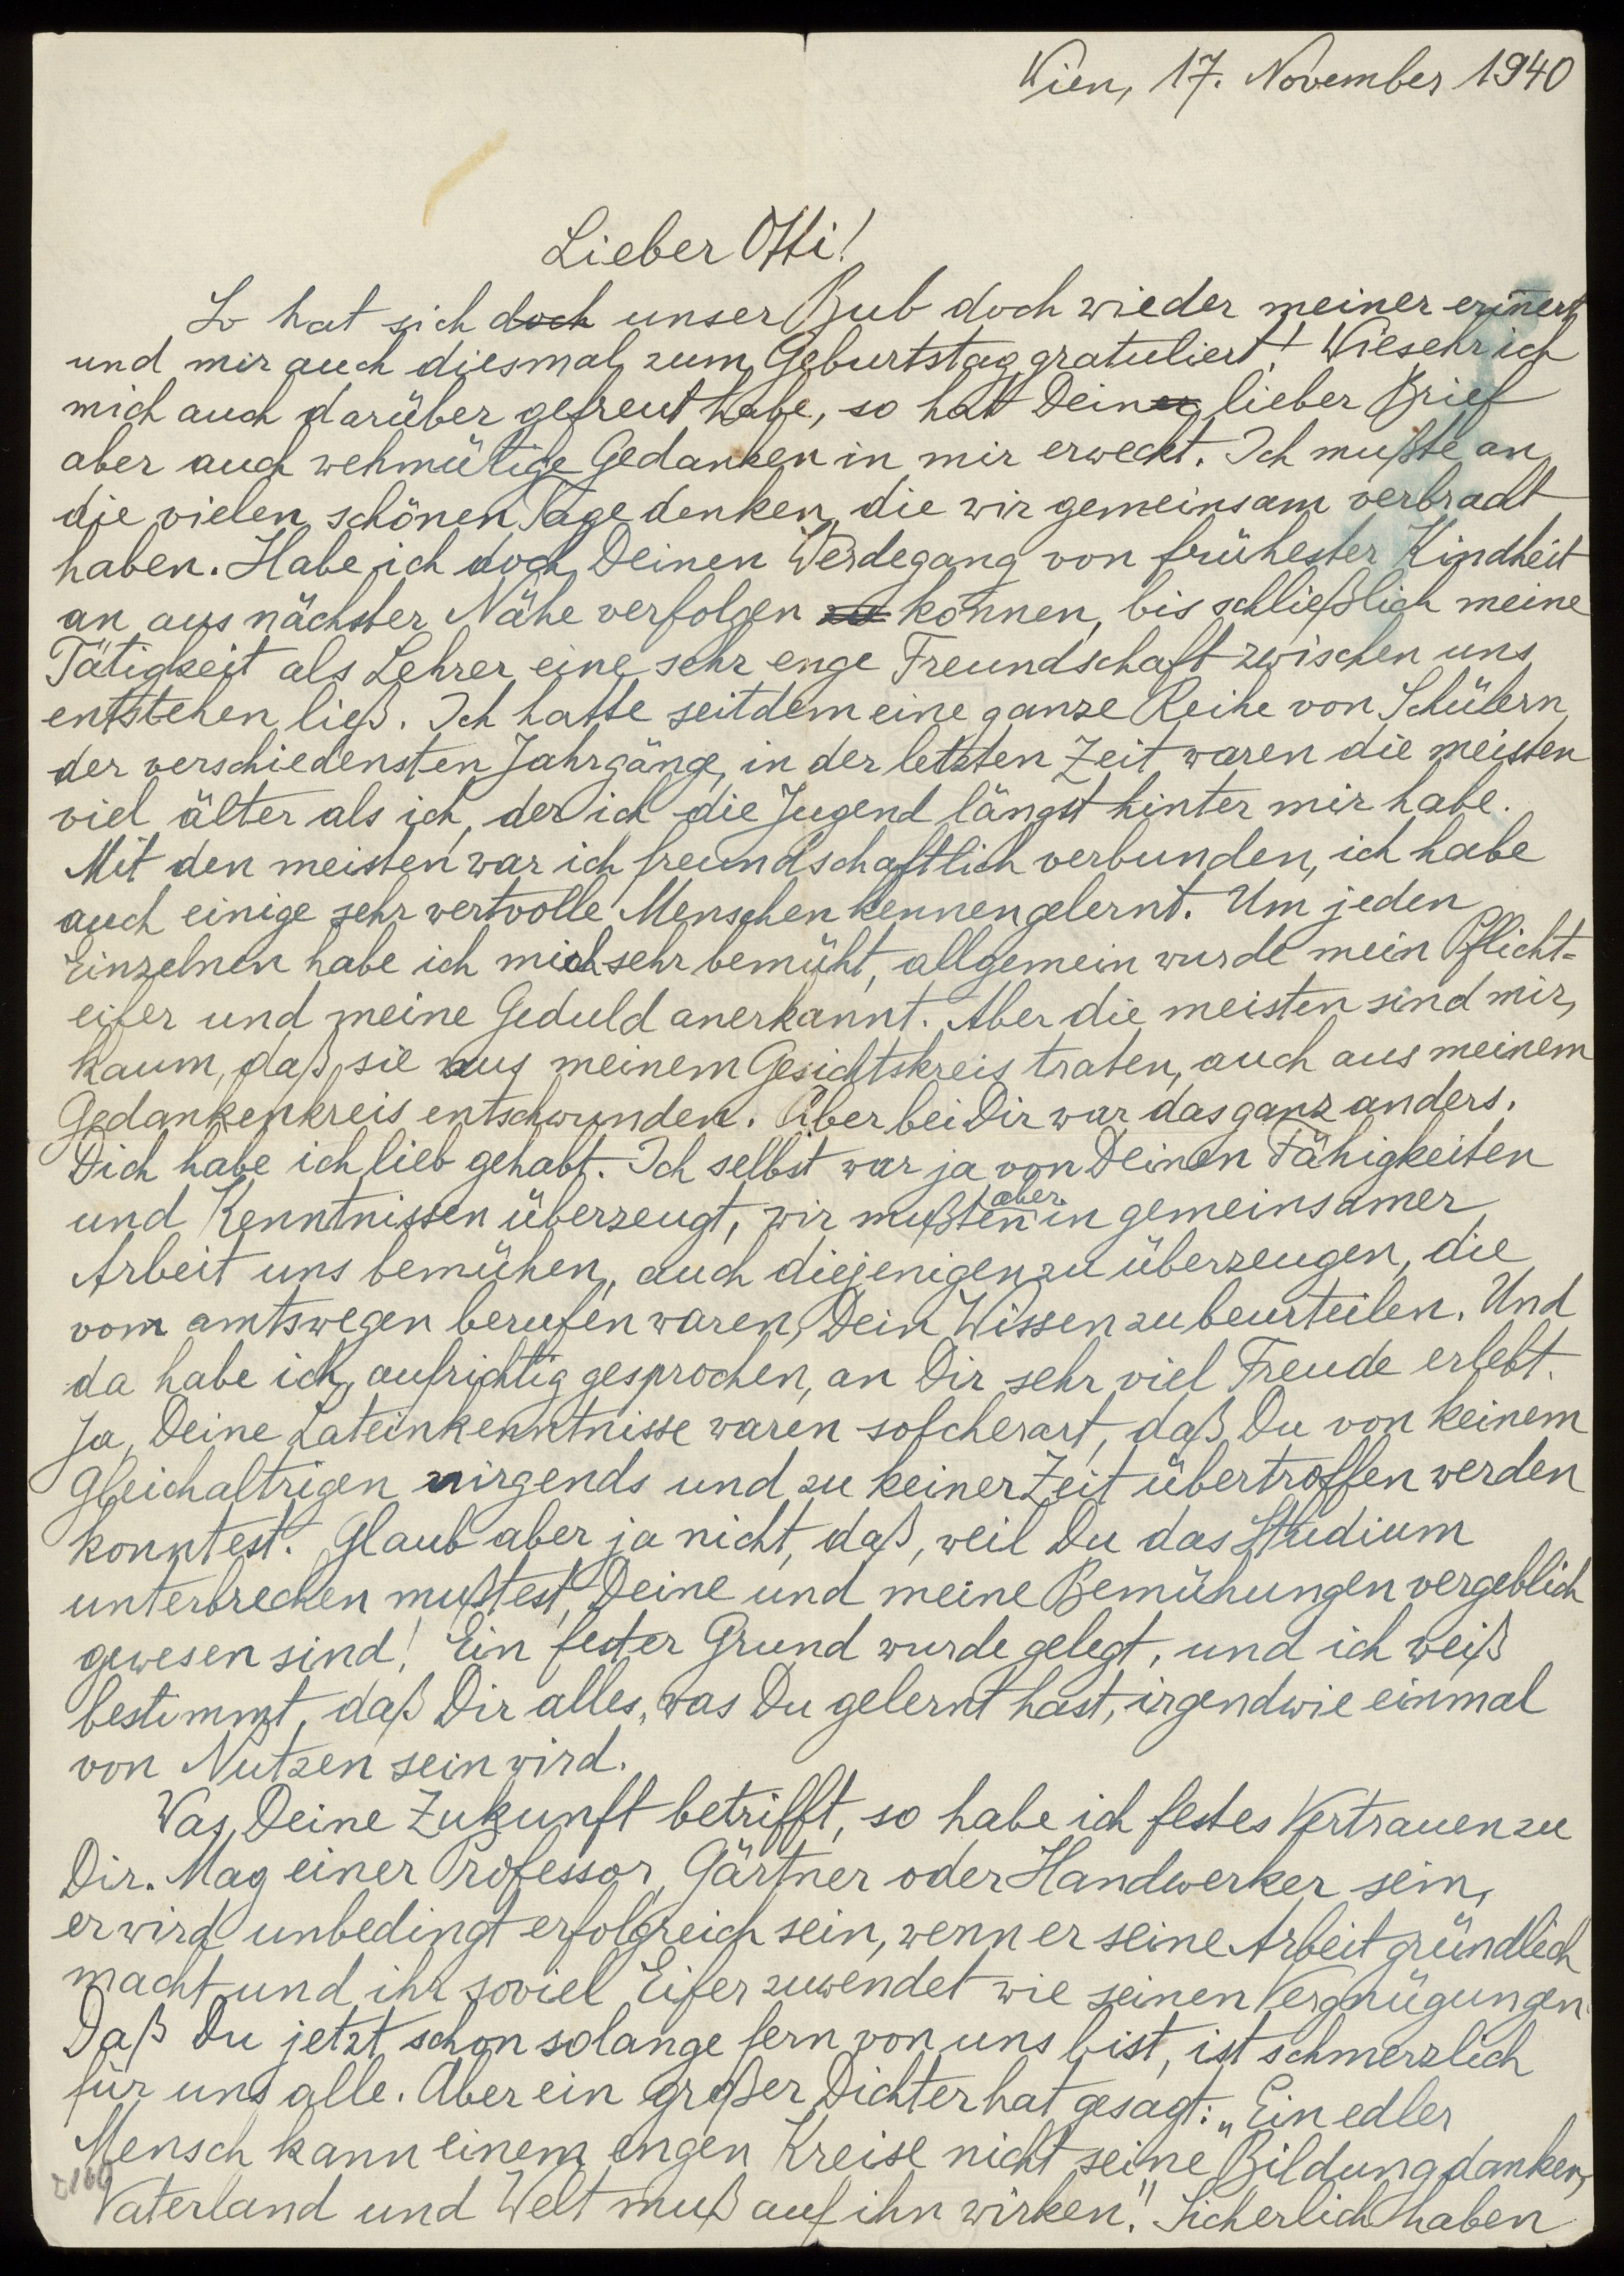 Wien, 17. November 1940
Lieber Otti!
So hat sich doch unser Bub doch wieder meiner erinnert
und mir auch diesmal zum Geburtstag gratuliert! Wiesehr ich
mich auch darüber gefreut habe, so hat Dein lieber Brief
aber auch wehmütige Gedanken in mir erweckt. Ich mußte an
die vielen schönen Tage denken, die wir gemeinsam verbracht
haben. Habe ich doch Deinen Werdegang von frühester Kindheit
an aus nächster Nähe verfolgen zu können, bis schließlich meine
Tätigkeit als Lehrer eine sehr enge Freundschaft zwischen uns
entstehen ließ. Ich hatte seitdem eine ganze Reihe von Schülern
der verschiedensten Jahrgänge, in der letzten Zeit waren die meisten
viel älter als ich, der ich die Jugend längst hinter mir habe.
Mit den meisten war ich freundschaftlich verbunden, ich habe
auch einige sehr wertvolle Menschen kennengelernt. Um jeden
Einzelnen habe ich mich sehr bemüht, allgemein wurde mein Pflicht-
eifer und meine Geduld anerkannt. Aber die meisten sind mir,
kaum, daß sie aus meinem Gesichtskreis traten, auch aus meinem
Gedankenkreis entschwunden. Aber bei Dir war das ganz anders.
Dich habe ich lieb gehabt. Ich selbst war ja von Deinen Fähigkeiten
und Kenntnissen überzeugt, wir mußten aber in gemeinsamer
Arbeit uns bemühen, auch diejenigen zu überzeugen, die
vom amtswegen berufen waren, Dein Wissen zu beurteilen. Und
da habe ich, aufrichtig gesprochen, an Dir sehr viel Freude erlebt.
Ja, Deine Lateinkenntnisse waren solcherart, daß Du von keinem
Gleichaltrigen nirgends und zu keiner Zeit übertroffen werden
konntest. Glaub aber ja nicht, daß, weil Du das Studium
unterbrechen mußtest, Deine und meine Bemühungen vergeblich
gewesen sind! Ein fester Grund wurde gelegt, und ich weiß
bestimmt, daß Dir alles, was Du gelernt hast, irgendwie einmal
von Nutzen sein wird.
Was Deine Zukunft betrifft, so habe ich festes Vertrauen zu
Dir. Mag einer Professor, Gärtner oder Handwerker sein,
er wird unbedingt erfolgreich sein, wenn er seine Arbeit gründlich
macht und ihr soviel Eifer zuwendet wie seinen Vergnügungen.
Daß Du jetzt schon solange fern von uns bist, ist schmerzlich
für uns alle. Aber ein großer Dichter hat gesagt: „Ein edler
Mensch kann einem engen Kreise nicht seine Bildung danken,
Vaterland und Welt muß auf ihn wirken". Sicherlich haben